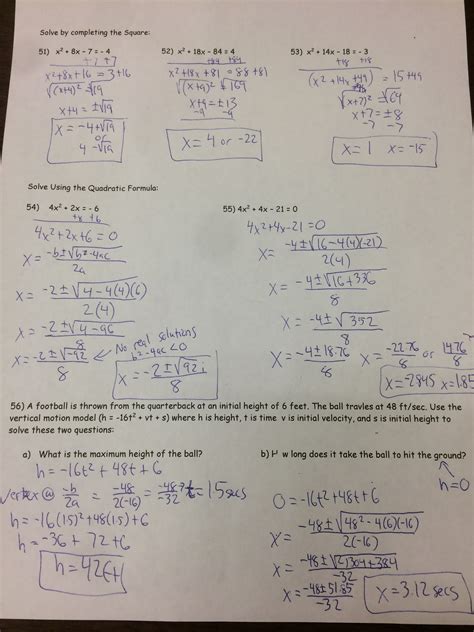 Solve by completing the Square:
51) x² + 8x - 7 = - 4
+7 +7
x²+8x+16 = 3+16
√(x+4)² = √19
x+4 = ±√19
x = -4+√19
or
4 -√19
52) x² + 18x - 84 = 4
+84 +84
x²+18x+81 = 88+81
√(x+9)² = √169
x+9 = ±13
-9 -9
x = 4 or -22
53) x² + 14x - 18 = - 3
+18 +18
(x²+14x+49) = 15+49
√(x+7)² = √64
x+7 = ±8
-7 -7
x = 1 x = -15
Solve Using the Quadratic Formula:
54) 4x² + 2x = - 6
+6
4x²+2x+6 = 0
x = -b±√b²-4ac
2a
x = -2±√4-4(4)(6)
2(4)
x = -2±√4-96
8
x = -2±√-92
8
No real solutions
b²-4ac<0
x = -2±√92i
8
55) 4x² + 4x - 21 = 0
4x²+4x-21 = 0
x = -4±√16-4(4)(-21)
2(4)
x = -4±√16+336
8
x = -4±√352
8
x = -4±18.76
8
x = -22.76 or 14.76
8 8
x = -2.845 x = 1.85
56) A football is thrown from the quarterback at an initial height of 6 feet. The ball travles at 48 ft/sec. Use the
vertical motion model (h = -16t² + vt + s) where h is height, t is time v is initial velocity, and s is initial height to
solve these two questions:
a) What is the maximum height of the ball?
h = -16t² + 48t + 6
vertex @ -b = -48 = -48 = 1.5 secs
2a 2(-16) -32
h = -16(1.5)²+48(1.5)+6
h = -36 + 72 +6
h = 42ft
b) H w long does it take the ball to hit the ground?
h=0
0 = -16t²+48t+6
x = -48±√48²-4(6)(-16)
2(-16)
x = -48±√2304+384
-32
x = -48±51.85
-32
x = 3.12 secs